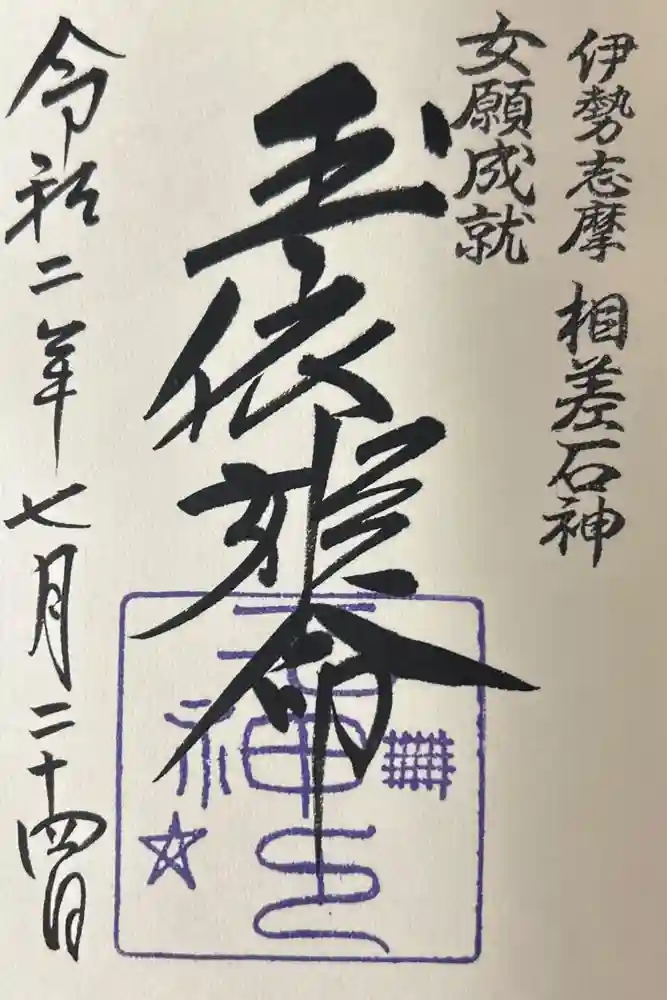 伊勢志摩 相差石神
女願成就
玉依姫命
令和二年七月二十四日
石神